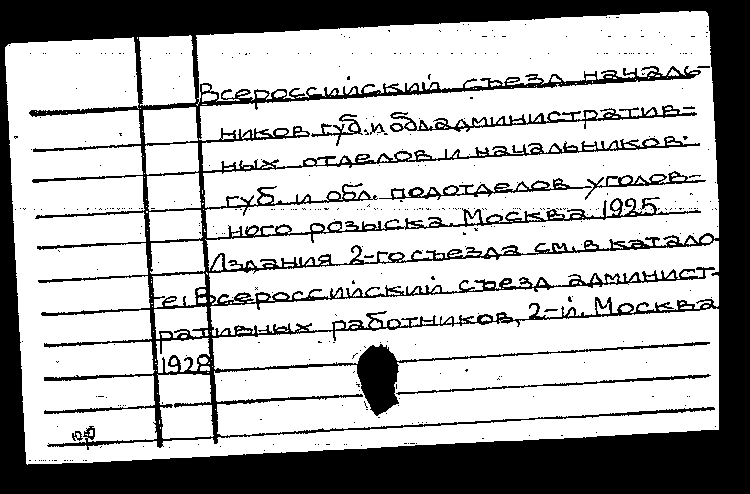 Всероссийский съезд началь-
ников губ. и обл. административ-
ных отделов и начальников
губ. и обл. подотделов уголов-
ного розыска. Москва 1925.
Издания 2-го съезда см. в катало-
ге: Всероссийский съезд админист-
ративных работников, 2-й. Москва
1928